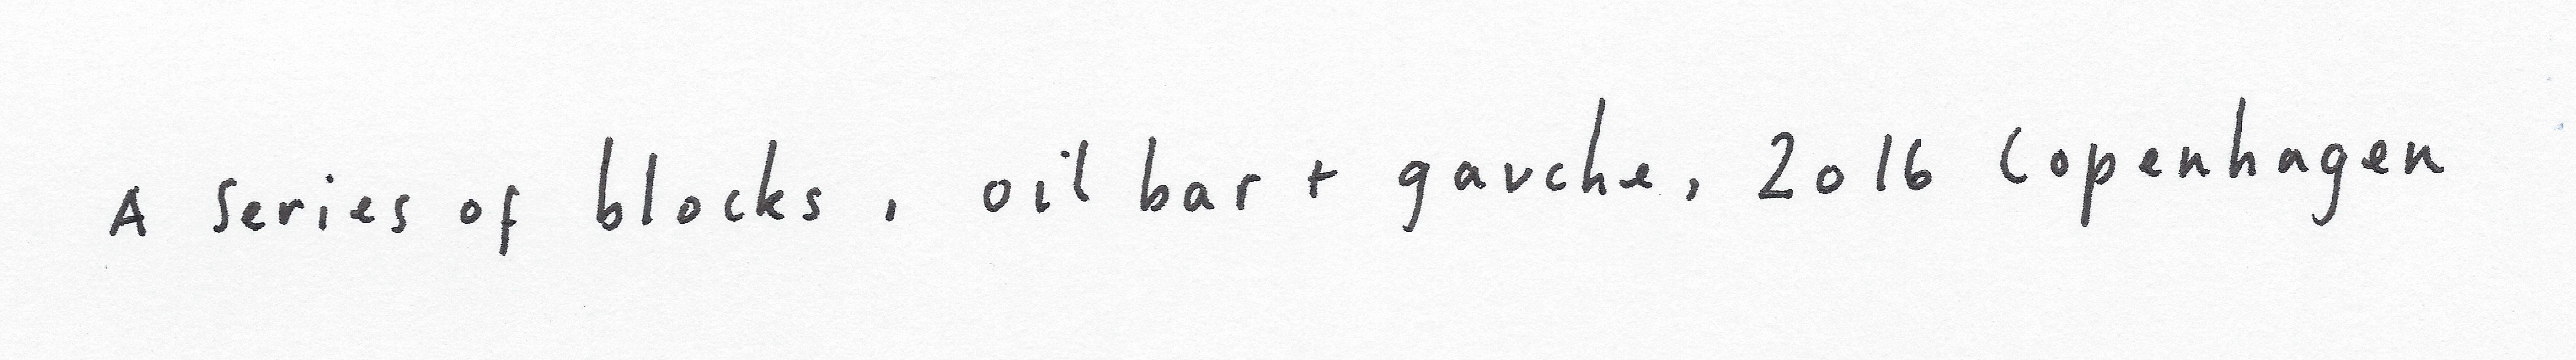 A series of blocks, oil bar + gauche, 2016 Copenhagen